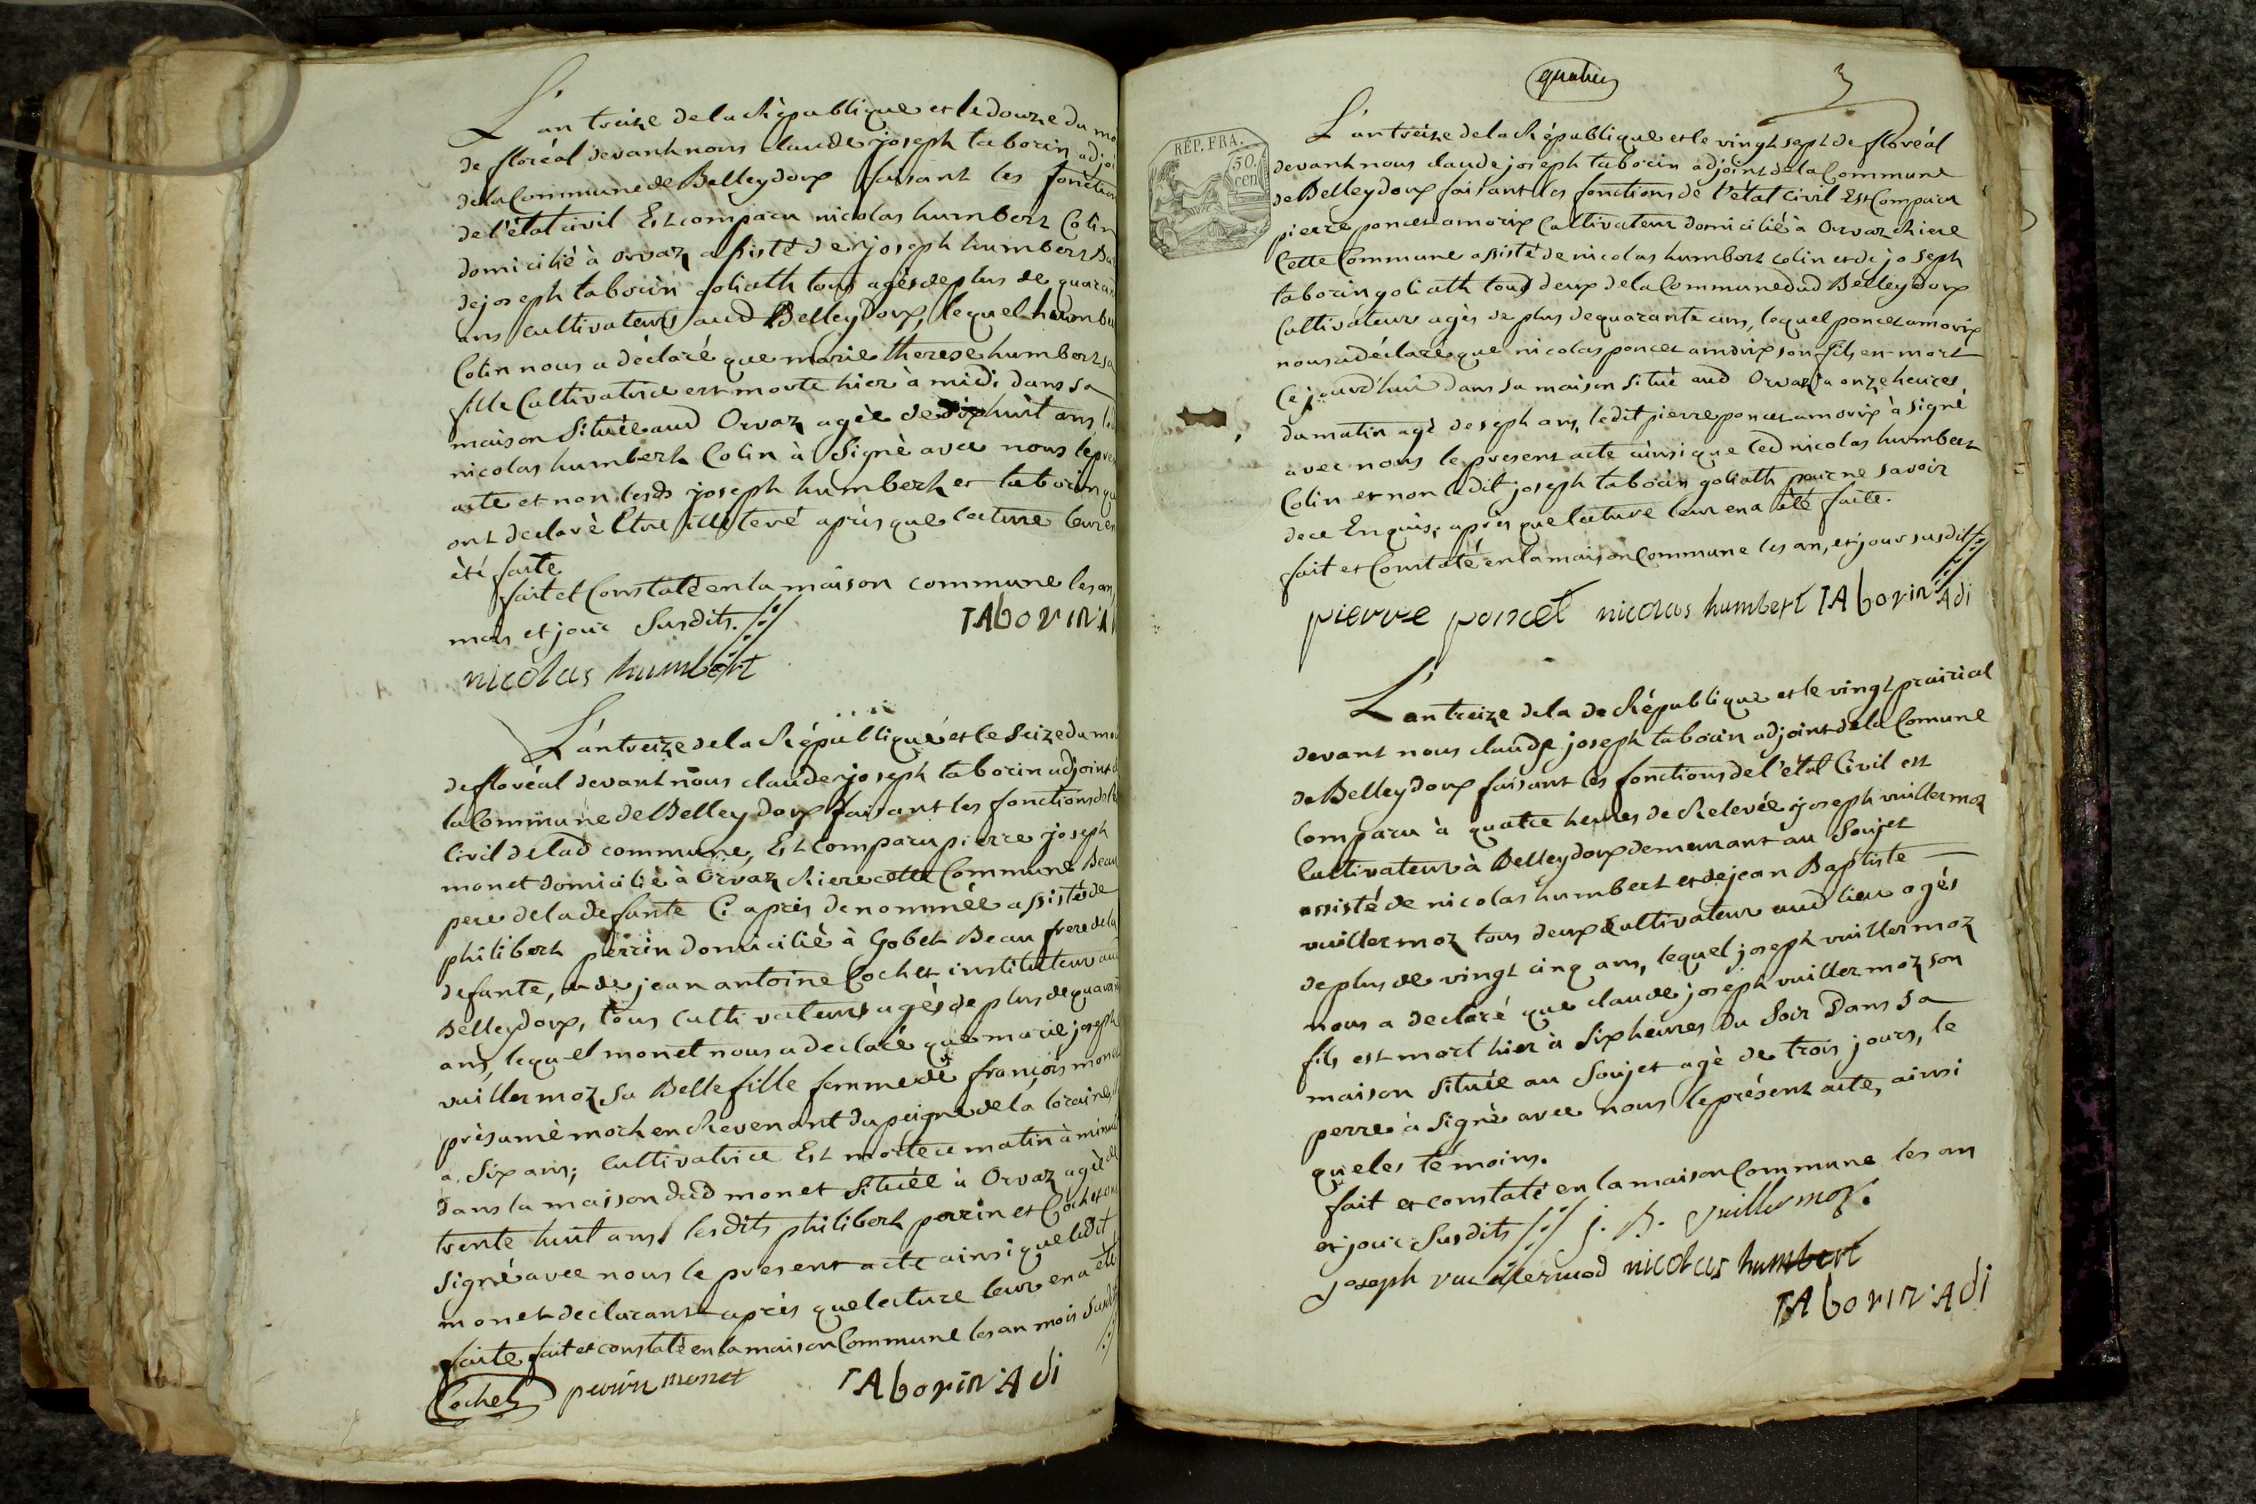 L'an treize de la République et le douze du mo
de floréal devant nous claude joseph taborin adjoi
de la Commune de Belleydoux faisant les fonction
de l'état civil Est comparu nicolas humbert Colin
domicilié à orvaz assisté de joseph humbert
de joseph taborin goliath tous agés de plus de quaran
ans cultivateurs aud Belleydoux, lequel humbe
Colin nous a déclaré que marie therese humbert sa
fille Cultivatrice est morte hier à midi dans sa
maison Située aud Orvaz agée de dixhuit ans,
nicolas humbert Colin à Signé avec nous le pre
acte et non lesds joseph humbert et taborin qu
ont declaré Etre illeteré après que lecture leur en
été faite
fait et Constaté en la maison commune les an,
mois et jour Susdits.
TAborin A
nicolas humbert
L'an treize de la République et le Seize du moi
de floréal devant nous claude joseph taborin adjoint d
la Commune de Belleydoux faisant les fonctions de l'é
Civil de lad commune, Est comparu pierre joseph
monet domicilié à Orvaz riere cette Commune Beau
pere de la defunte Ci après denommée assisté de
philibert perrin domicilié à Gobet Beau frere de la
defunte, et de jean antoine Cochet instituteur aud
Belleydoux, tous cultivateurs agés de plus de quarant
ans, lequel monet nous a declaré que marie joseph
vuillermoz Sa Bellefille femme de françois monet
présumé mort en Revenant du peigne de la loraine,
a Six ans; cultivatrice Est morte ce matin à minuit
dans la maison dud monet Située à Orvaz agée de
trente huit ans lesdits philibert perrin et Cochet on
Signé avec nous le present acte ainsi que ledit
monet declarant après que lecture leur en a été
faite fait et constaté en la maison Commune les an mois susdit
Cochet perrin monet TAborin Adi
quatre
3
RÉP. FRA.
50 cen
L'an treize de la République et le vingt sept de floréal
devant nous claude joseph taborin adjoint de la Commune
de Belleydoux faisant les fonctions de l'état Civil Est Comparu
pierre poncet amorix Cultivateur domicilié à Orvaz riere
Cette Commune assisté de nicolas humbert colin et de joseph
taborin goliath tous deux de la Commune dud Belleydoux
Cultivateur agés de plus de quarante ans, lequel poncet amorix
nous a déclaré que nicolas poncet amorix son fils est mort
Cejourd'hui dans sa maison Situé aud Orvaz à onze heures
du matin agé de sept ans, ledit pierre poncet amorix à signé
avec nous le present acte ainsi que led nicolas humbert
Colin et non ledit joseph taborin goliath pour ne savoir
de ce Enquis; après que lecture leur en a été faite.
fait et Constaté en la maison Commune les an, et jour susdits
pierre poncet nicolas humbert TAborin Adi
L'an treize de la de République et le vingt prairial
devant nous claude joseph taborin adjoint de la Comune
de Belleydoux faisant les fonctions de l'état Civil est
Comparu à quatre heures de Relevée joseph vuillermoz
Cultivateur à Belleydoux demeurant au Soujet
assisté de nicolas humbert et de jean Baptiste
vuillermoz tous deux Cultivateur aud lieu agés
de plus de vingt cinq ans, lequel joseph vuillermoz
nous a declaré que claude joseph vuillermoz son
fils est mort hier à Six heures du Soir Dans Sa
maison Située au Soujet agé de trois jours, le
perre à Signé avec nous le présent acte, ainsi
que les témoins.
fait et constaté en la maison Commune les an
et jour Susdits j. B. Vuillermoz.
joseph vuillermod nicolas humbert
TAborin Adi